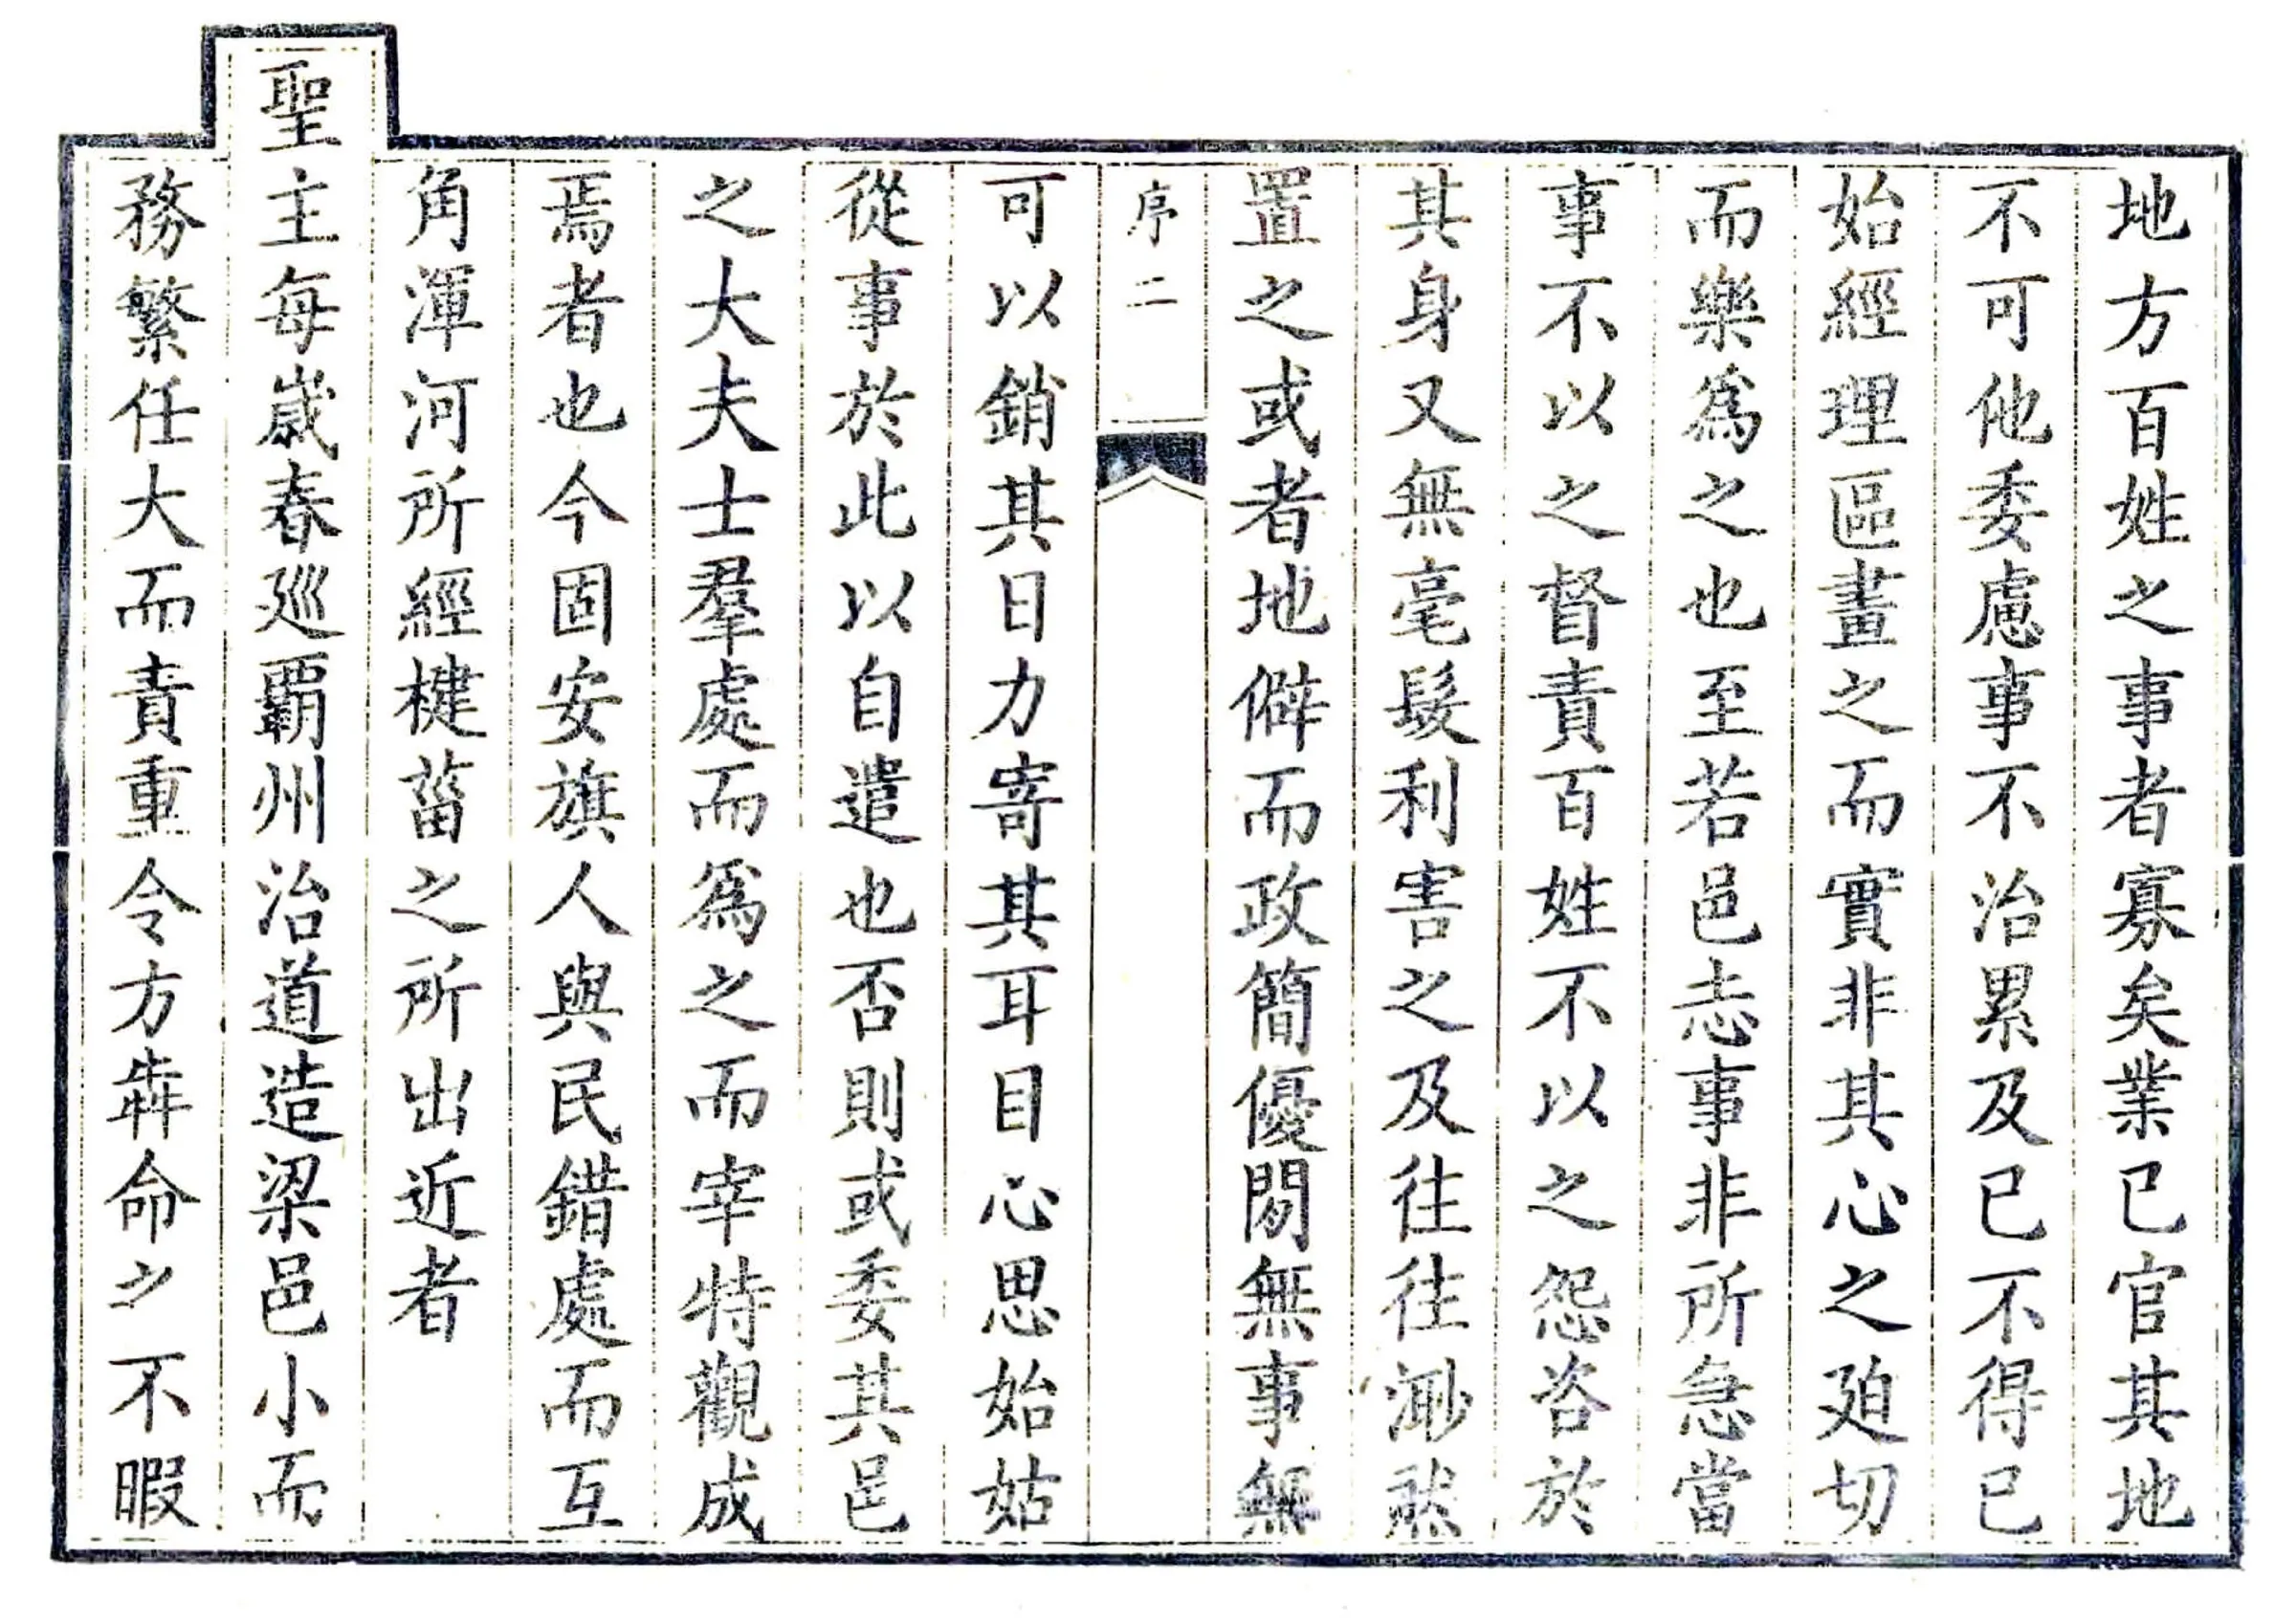 地方百姓之事者寡矣業已官其地
不可他委慮事不治累及已不得已
始經理區畫之而實非其心之廹切
而樂為之也至若邑志事非所急當
事不以之督責百姓不以之怨咨於
其身又無毫髮利害之及往往渺然
置之或者地僻而政簡優閒無事無
序二
可以銷其日力寄其耳目心思始姑
從事於此以自遣也否則或委其邑
之大夫士羣處而為之而宰特觀成
焉者也今固安旗人與民錯處而互
角渾河所經楗菑之所出近者
聖主每歲春廵覇州治道造梁邑小而
務繁任大而責重令方犇命之不暇